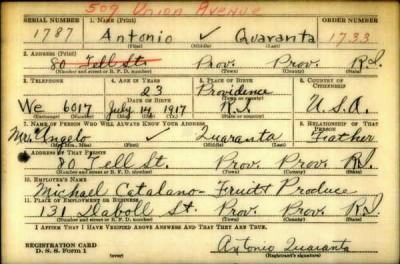 509 Union Avenue
SERIAL NUMBER 1. NAME (Print) ORDER NUMBER
1787 Antonio ✓ Quaranta 1733
(First) (Middle) (Last)
2. ADDRESS (Print)
80 Tell St. Prov. Prov. R.I.
(Number and street or R. F. D. number) (Town) (County) (State)
3. TELEPHONE 4. AGE IN YEARS 5. PLACE OF BIRTH 6. COUNTRY OF CITIZENSHIP
23 Providence
DATE OF BIRTH
We 6017 July 14, 1917 R.I. U.S.A.
(Exchange) (Number) (Mo.) (Day) (Yr.) (State or country)
7. NAME OF PERSON WHO WILL ALWAYS KNOW YOUR ADDRESS 8. RELATIONSHIP OF THAT PERSON
Mr. Angelo ✓ Quaranta Father
(Mr., Mrs., Miss) (First) (Middle) (Last)
9. ADDRESS OF THAT PERSON
80 Tell St. Prov. Prov. R.I.
(Number and street or R. F. D. number) (Town) (County) (State)
10. EMPLOYER'S NAME
Michael Catalano - Fruit & Produce
11. PLACE OF EMPLOYMENT OR BUSINESS
131 Daboll St. Prov. Prov. R.I.
(Number and street or R. F. D. number) (Town) (County) (State)
I AFFIRM THAT I HAVE VERIFIED ABOVE ANSWERS AND THAT THEY ARE TRUE.
REGISTRATION CARD
D. S. S. Form 1
Antonio Quaranta
(Registrant's signature)